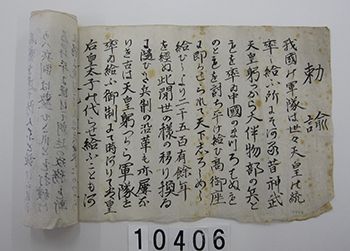 勅諭
我國の軍隊は世々天皇の統
率し給ふ所にそある昔神武
天皇躬つから大伴物部の兵と
もを率ゐ中國のまつろはぬも
のともを討ち平け給ひ高御座
に即かせられて天下しろしめし
給ひしより二千五百有餘年
を經ぬ此間世の樣の移り換る
に隨ひて兵制の沿革も亦屢な
りき古は天皇躬つから軍隊を
率ゐ給ふ御制にて時ありては皇
后皇太子の代らせ給ふことも
10406